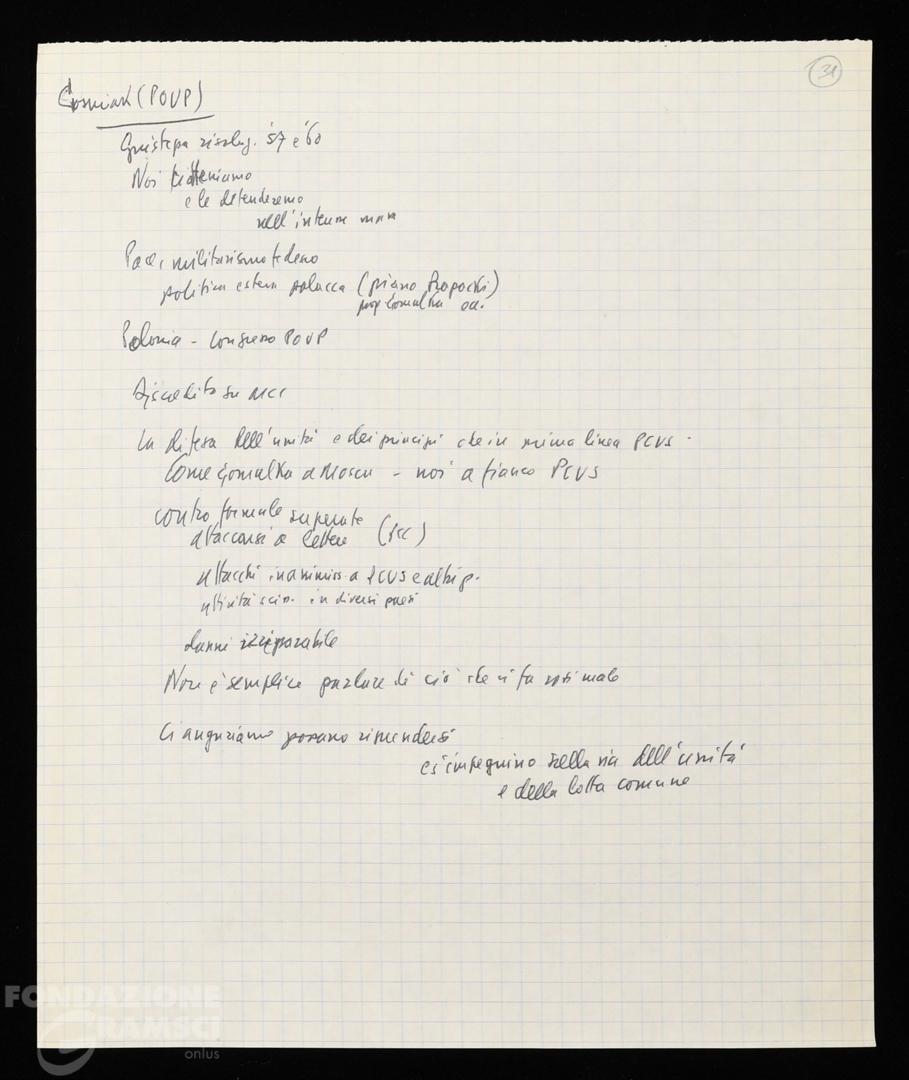 31
(POUP)
Giustezza risoluz. '57 e '60
Noi ci atteniamo
e le difenderemo
nell'interesse
Pace, militarismo tedesco
politica estera polacca (piano Rapacki)
prop Gomulka ecc.
Polonia - Congresso POUP
Discredito su
La difesa dell'unità e dei principi che in prima linea PCUS -
Come Gomulka a Mosca - noi a fianco PCUS
contro formule superate
attaccarsi a lettere (PCC)
attacchi inammiss. a PCUS e altri p.
attività sciss. in diversi paesi
danni irreparabile
Non è semplice parlare di ciò che ci fa male
Ci auguriamo possano
e s'impegnino sulla via dell'unità
e della lotta comune
FONDAZIONE
GRAMSCI
onlus